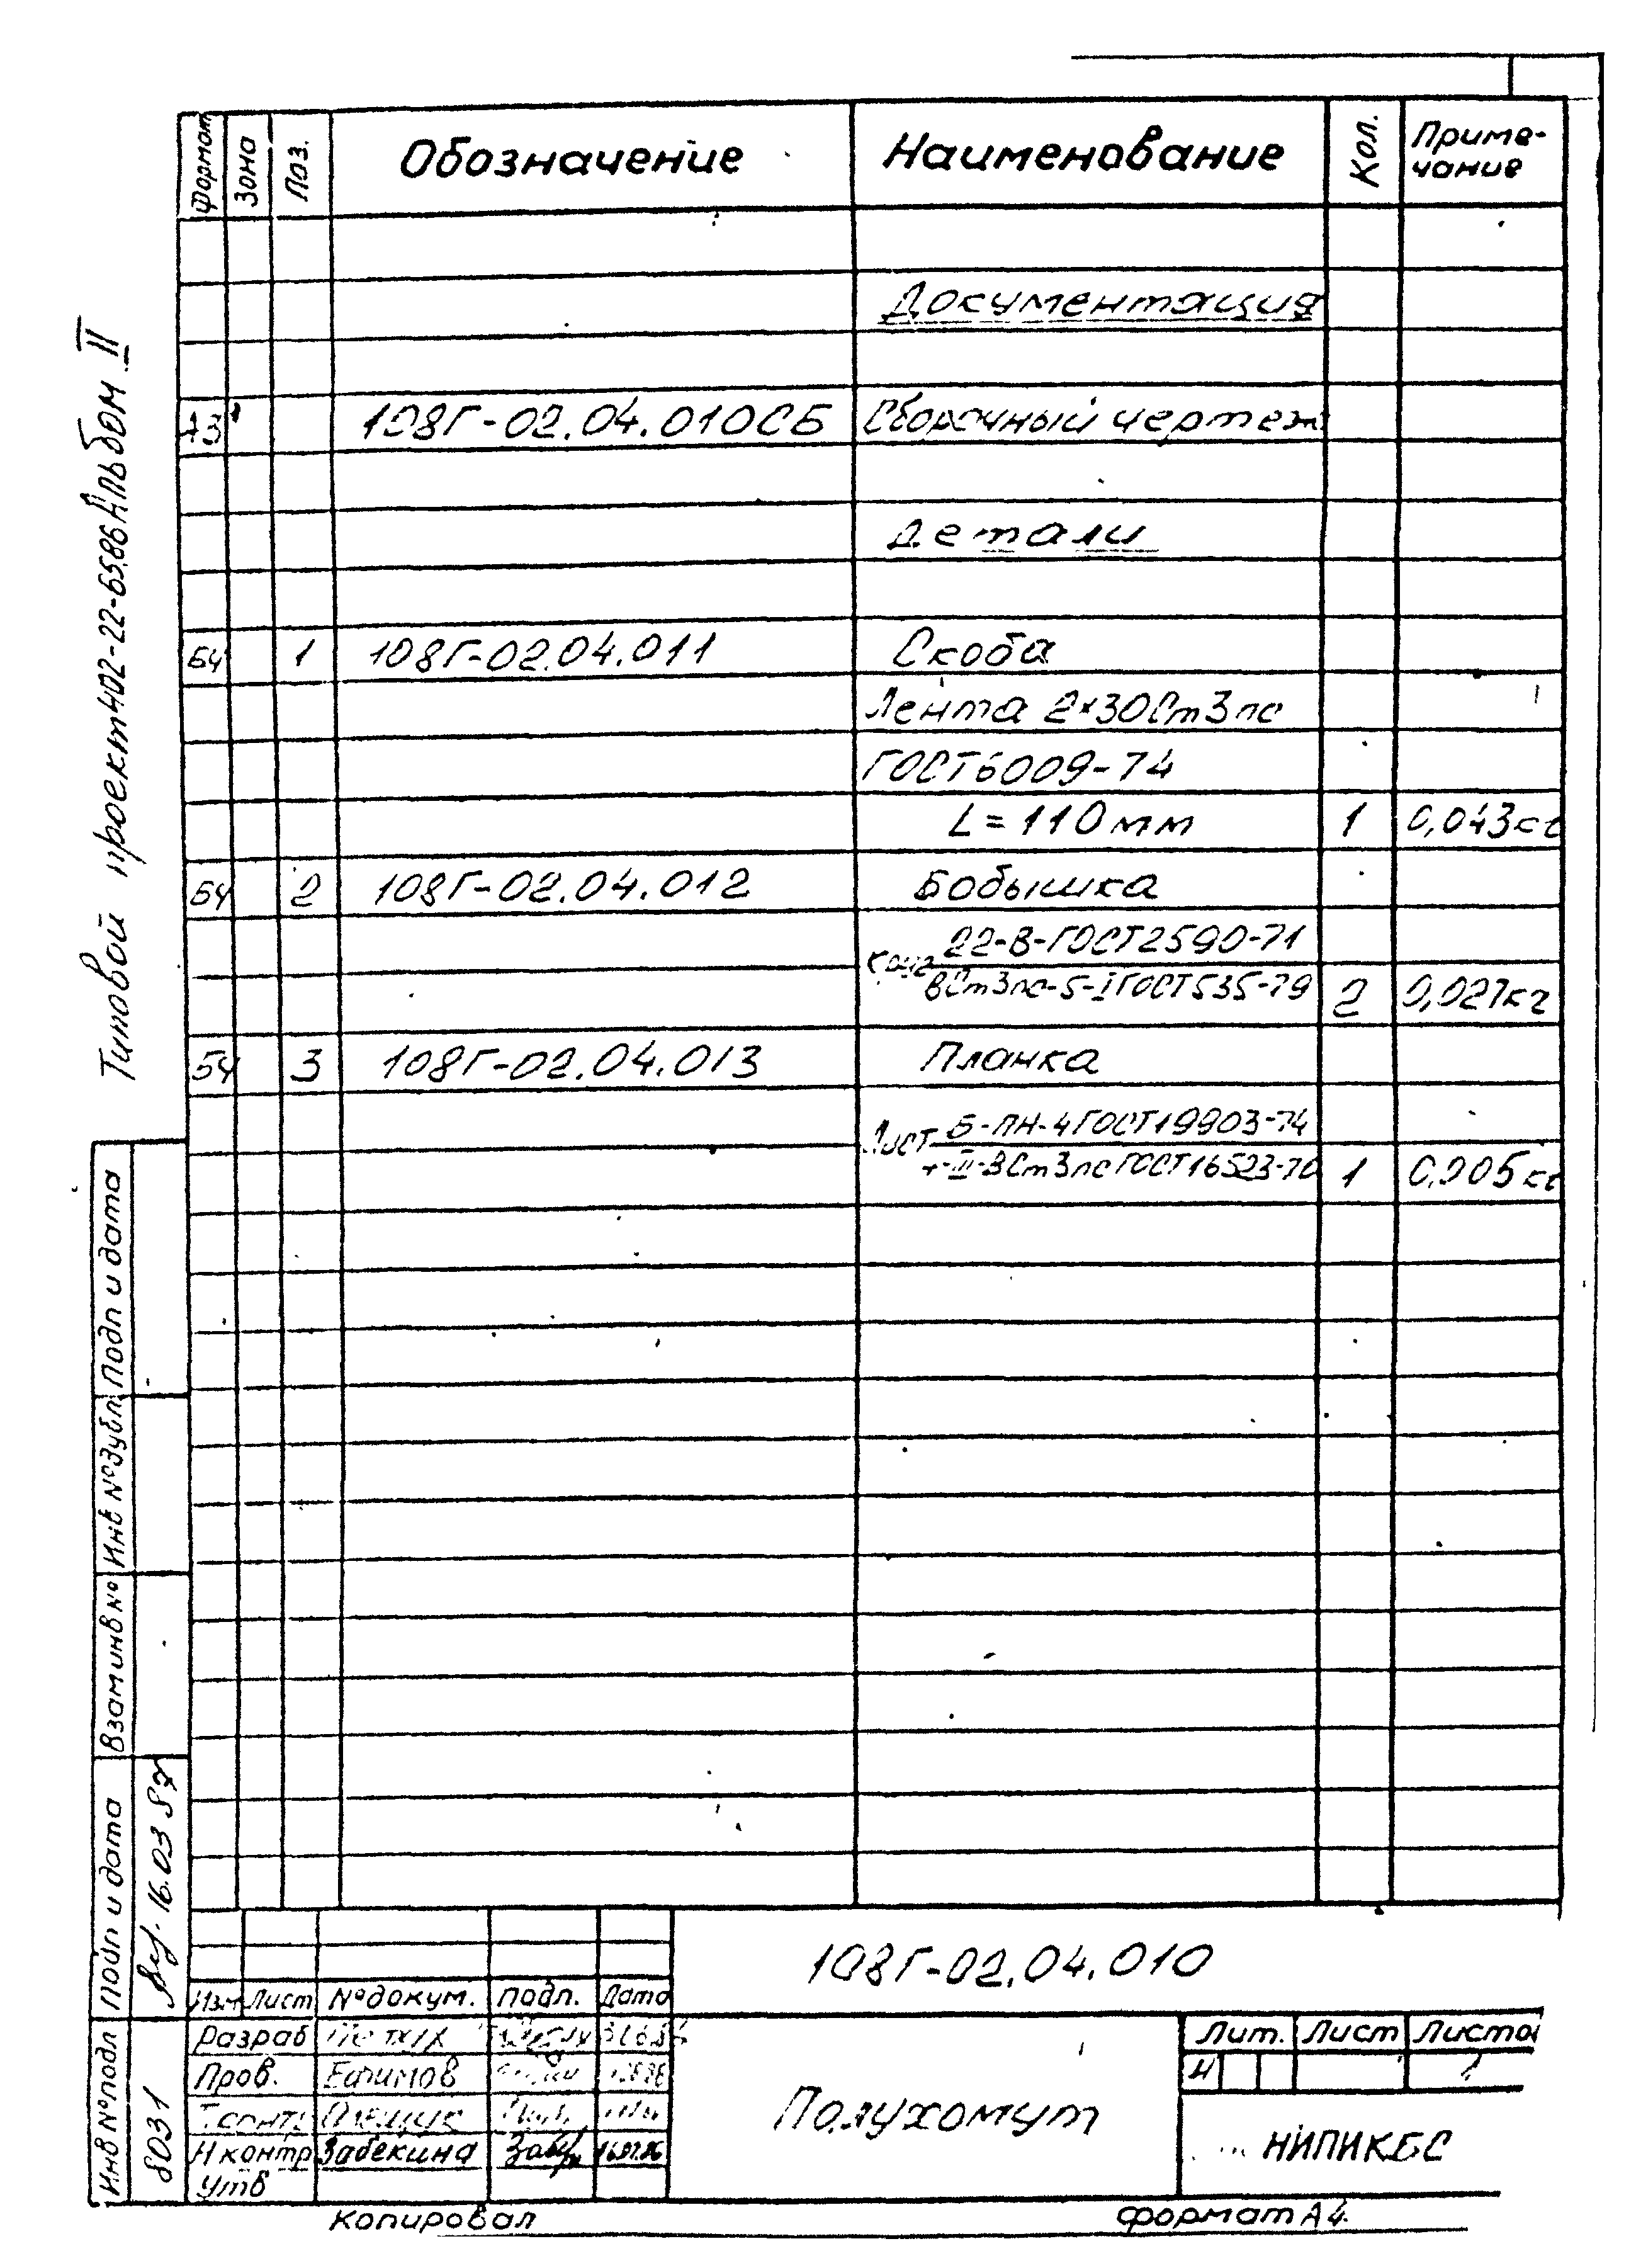 Формат Зона Поз. Обозначение Наименование Кол. Приме-
чание
Документация
А3 108Г-02.04.010СБ Сборочный чертеж
Детали
БЧ 1 108Г-02.04.011 Скоба
Лента 2×30Ст3пс
ГОСТ6009-74
L=110мм 1 0,043кг
БЧ 2 108Г-02.04.012 Бобышка
Круг 22-В-ГОСТ2590-71
ВСт3пс-5-I ГОСТ535-79 2 0,027кг
БЧ 3 108Г-02.04.013 Планка
Лист Б-ПН-4 ГОСТ19903-74
4-III-ВСт3пс ГОСТ16523-70 1 0,005кг
Типовой проект 402-22-65.86 Альбом II
Подп и дата
Инв №дубл
Взам инв №
подп и дата 16.03 87
Инв №подл 8031
108Г-02.04.010
Изм Лист №докум. подп. Дата
Разраб
Пров. Ефимов
Т.контр
Н контр Забекина 16.07.86
Утв
Полухомут
Лит. Лист Листов
И 1
НИПИКБС
Копировал формат А4